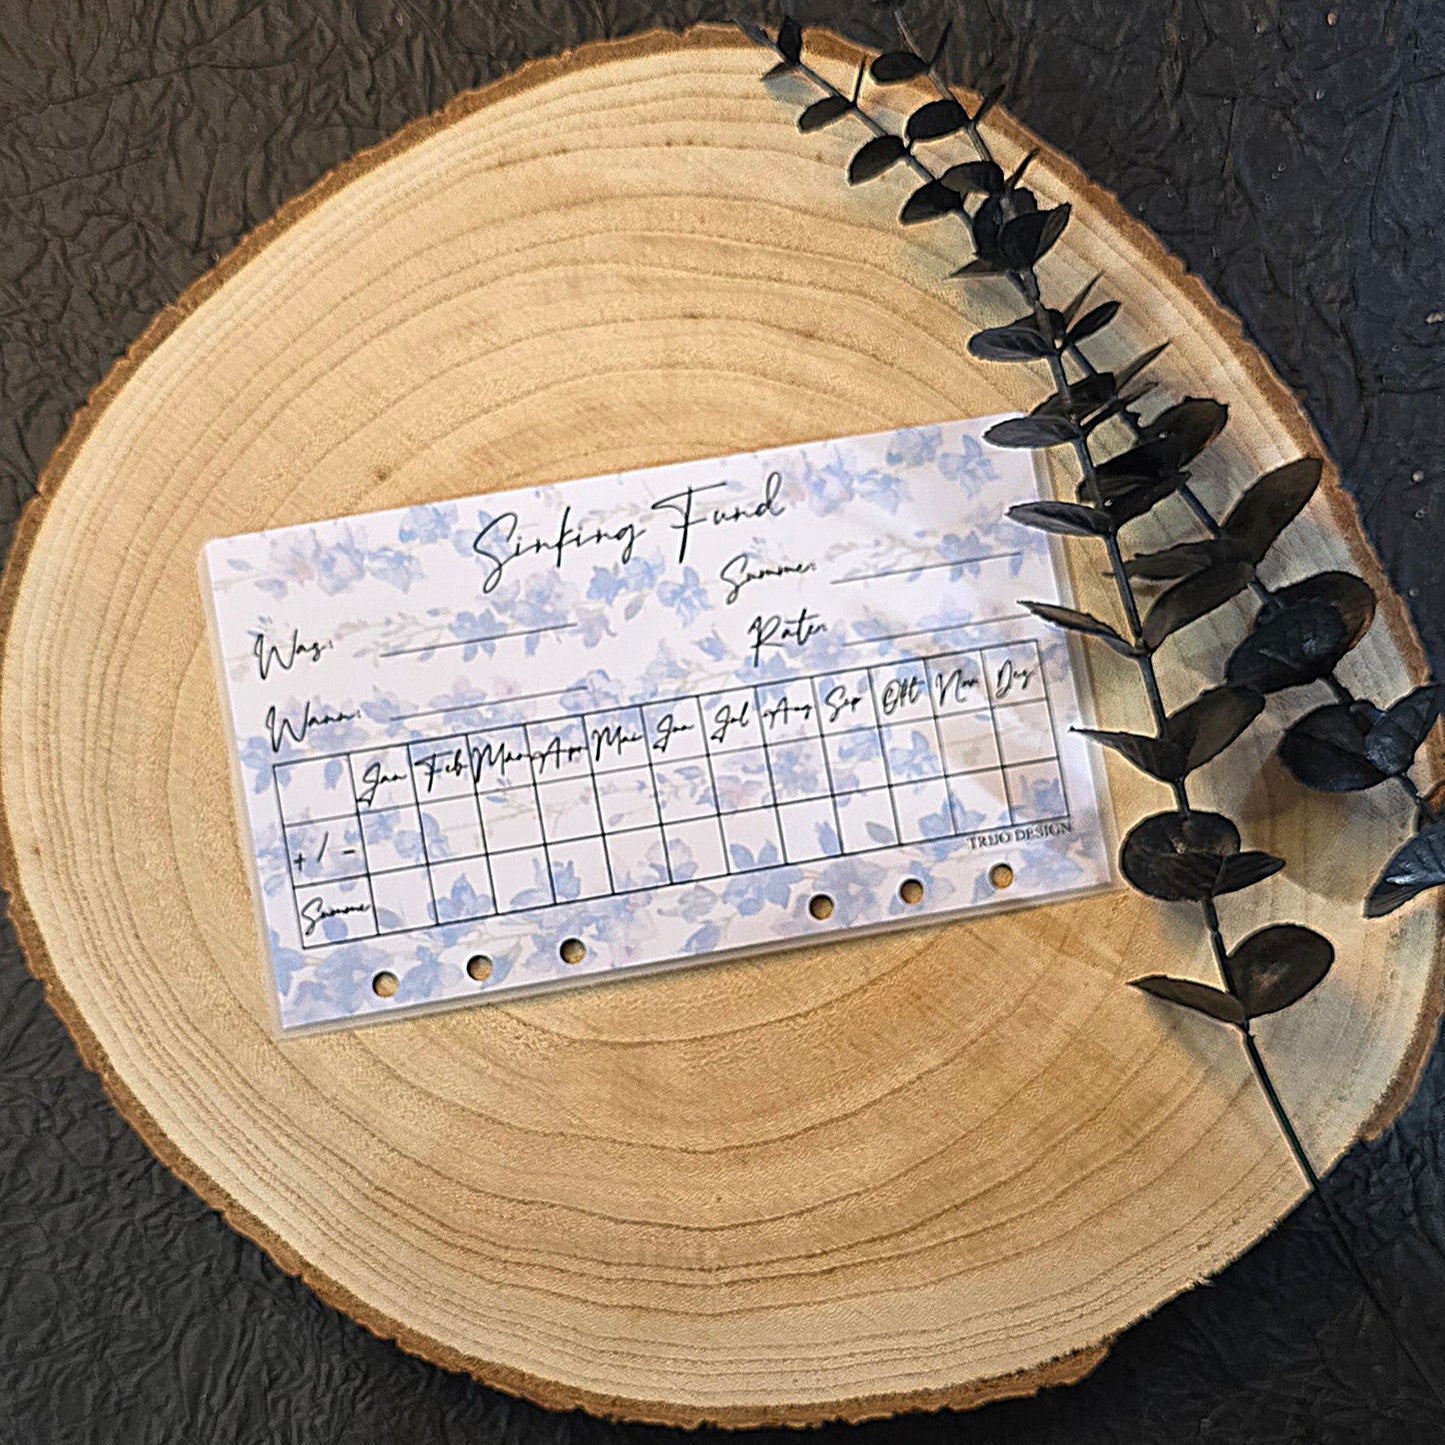 Sinking Fund
Was:
Summe:
Wann:
Raten:
Jan Feb Mär Apr Mai Jun Jul Aug Sep Okt Nov Dez
+ / -
Summe
TREJO DESIGN